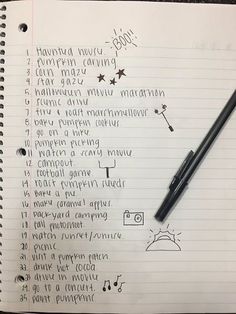 BOO!!
1. haunted house
2. pumpkin carving
3. corn maze
4. star gaze
5. halloween movie marathon
6. scenic drive
7. fire & roast marshmallows
8. bake pumpkin cookies
9. go on a hike
10. pumpkin picking
11. watch a scary movie
12. campout
13. football game
14. roast pumpkin seeds
15. bake a pie
16. make caramel apples
17. backyard camping
18. fall photoshoot
19. watch sunset/sunrise
20. picnic
21. visit a pumpkin patch
22. drink hot cocoa
23. drive in movie
24. go to a concert
25. paint pumpkins